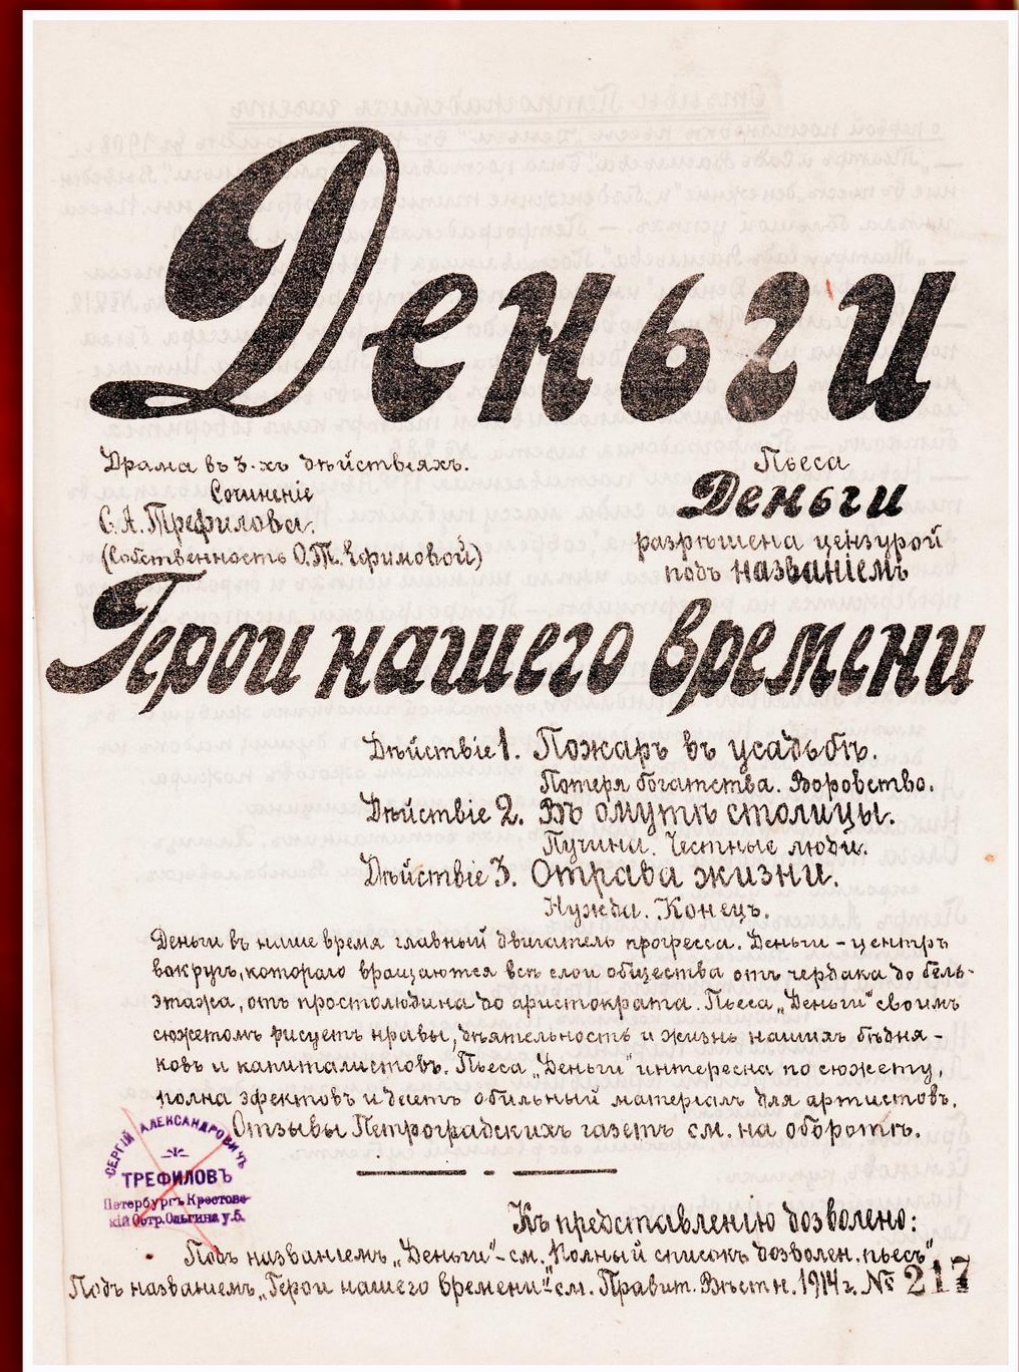 Деньги
Драма въ 3-хъ дѣйствіяхъ.
Сочиненіе
С.А. Трефилова.
(Собственность О.Т. Ефимовой)
Пьеса
Деньги
разрѣшена цензурой
подъ названіемъ
Герои нашего времени
Дѣйствіе 1. Пожаръ въ усадьбѣ.
Потеря богатства. Воровство.
Дѣйствіе 2. Въ омутѣ столицы.
Пучина. Честные люди.
Дѣйствіе 3. Отрава жизни.
Нужда. Конецъ.
Деньги въ наше время главный двигатель прогресса. Деньги – центръ
вокругъ, котораго вращаются всѣ слои общества отъ чердака до бель-
этажа, отъ простолюдина до аристократа. Пьеса „Деньги" своимъ
сюжетомъ рисуетъ нравы, дѣятельность и жизнь нашихъ бѣдня-
ковъ и капиталистовъ. Пьеса „Деньги" интересна по сюжету,
полна эфектовъ и даетъ обильный матеріалъ для артистовъ.
Отзывы Петроградскихъ газетъ см. на оборотѣ.
СЕРГѢЙ АЛЕКСАНДРОВИЧЪ
ТРЕФИЛОВЪ
Петербургъ Крестовс-
кій Остр. Ольгина у. 5.
Къ представленію дозволено:
Подъ названіемъ „Деньги" – см. Полный списокъ дозволен. пьесъ"
Подъ названіемъ „Герои нашего времени" – см. Правит. Вѣстн. 1914 г. № 217